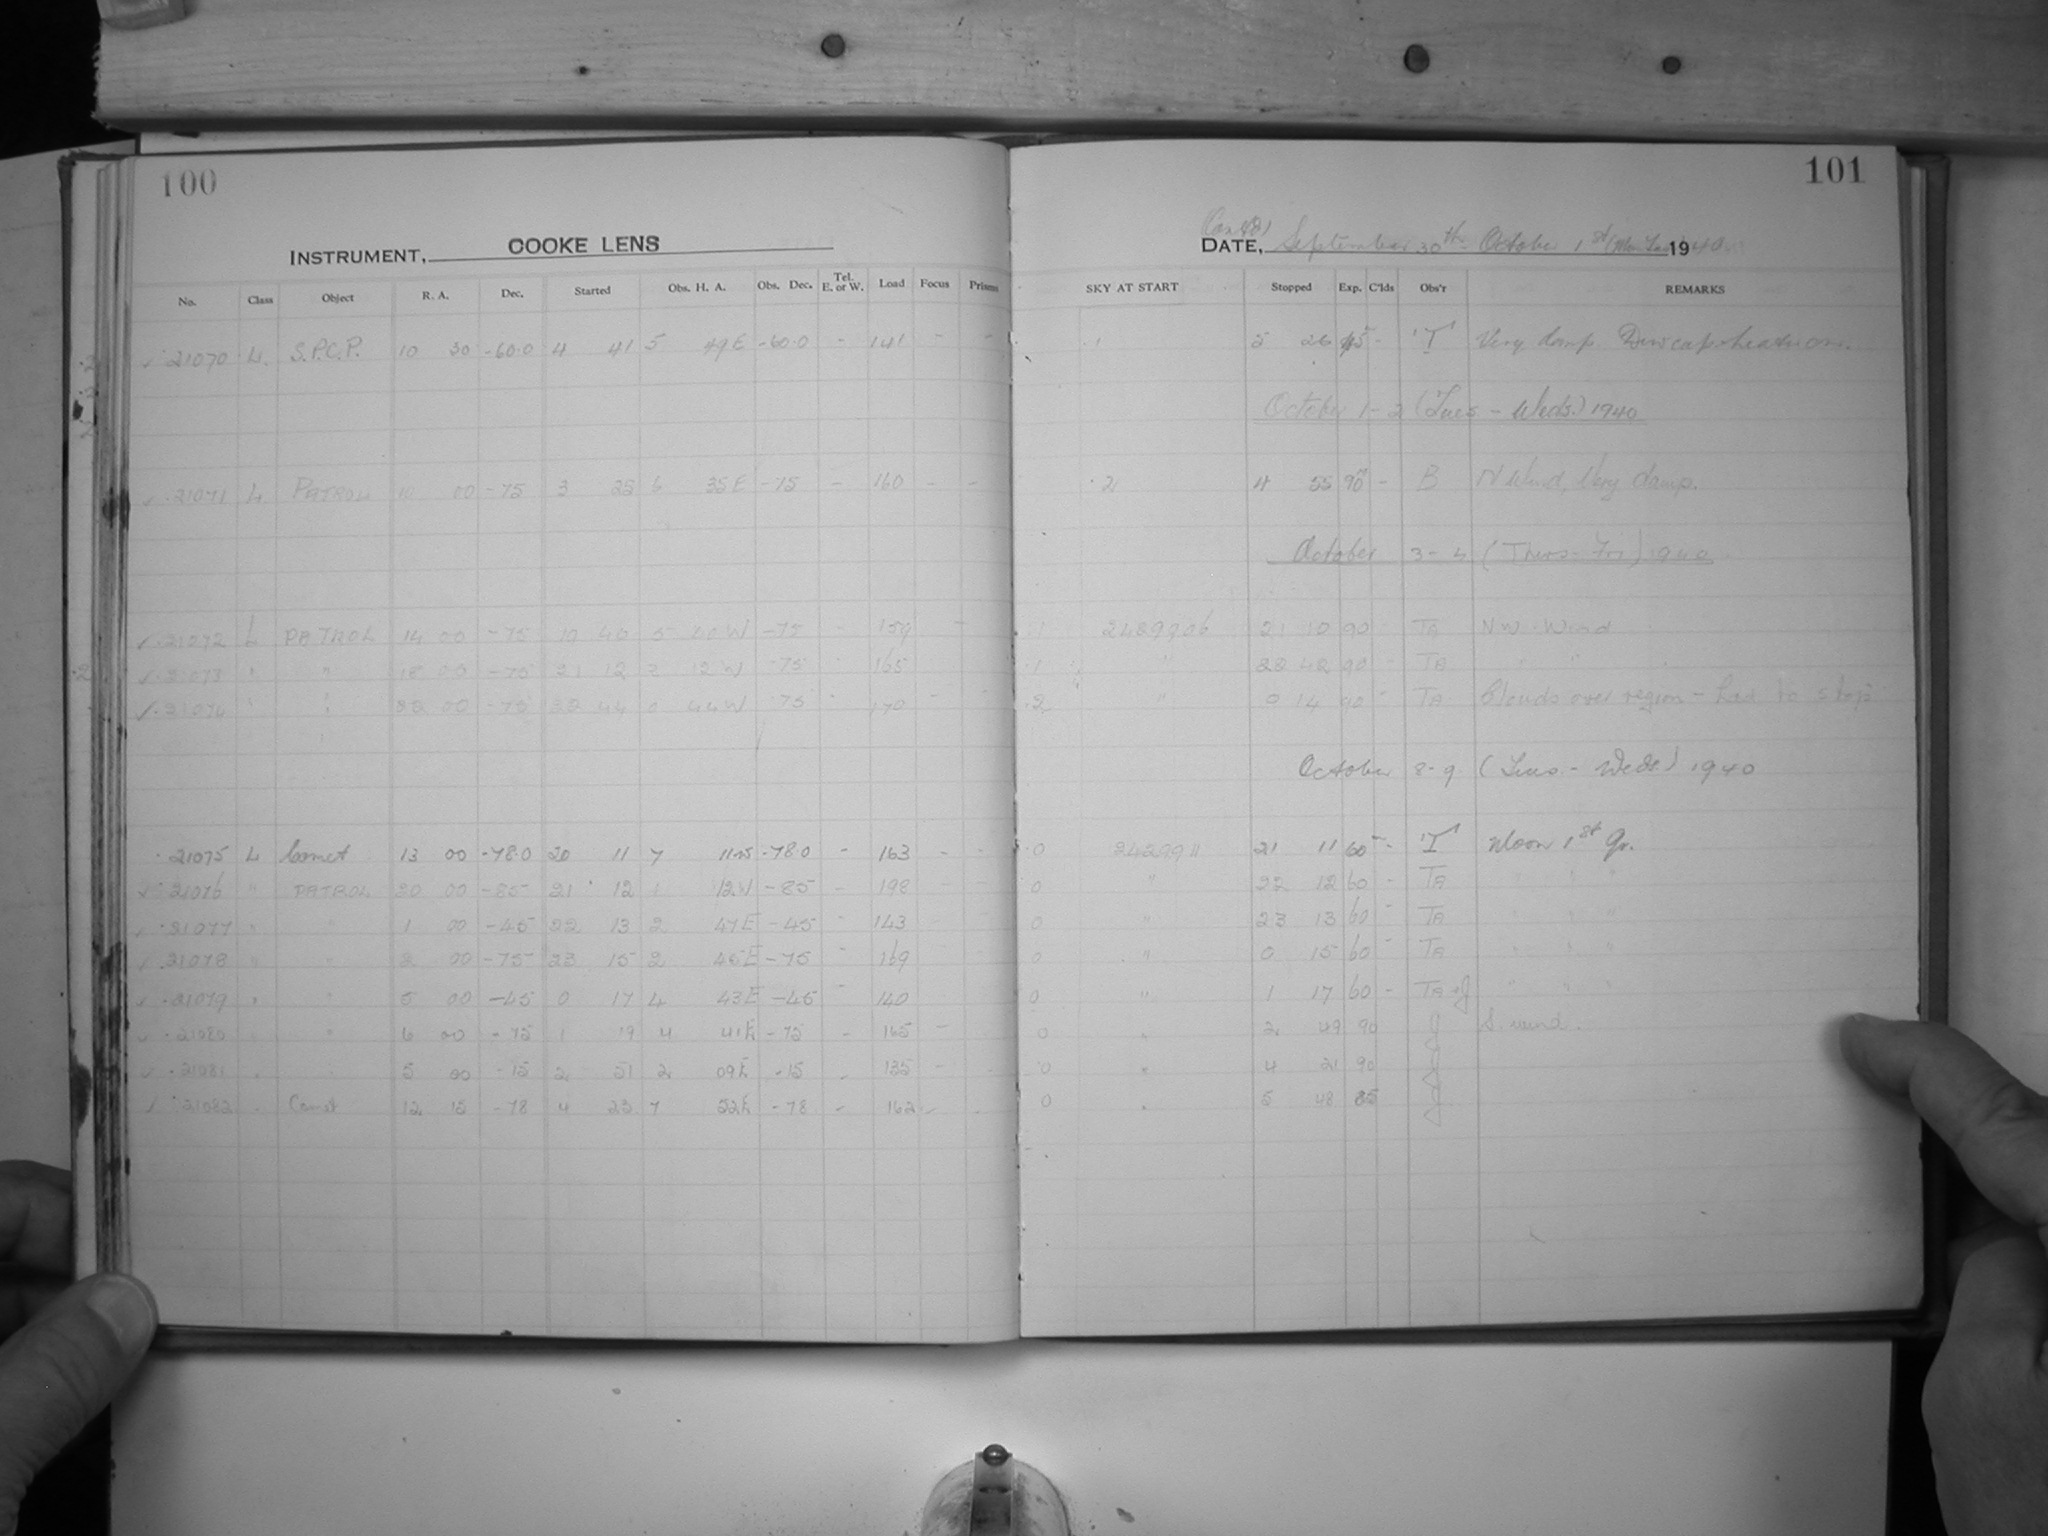 100
INSTRUMENT, COOKE LENS
No. Class Object R. A. Dec. Started Obs. H. A. Obs. Dec. Tel. E. or W. Load Focus Prisms
21070 L. S.P.C.P. 10 30 -60.0 4 41 5 49E -60.0 - 141 - -
21071 L PATROL 10 00 -75 3 25 6 35E -75 - 160 - -
21072 L PATROL 14 00 -75 19 40 5 40W -75 - 159 - -
21073 " " 18 00 -75 21 12 3 12W -75 165
21074 " " 22 00 -75 22 44 0 44W 75 170 - -
21075 L Comet 13 00 -78.0 20 11 7 -78.0 - 163 - -
21076 " PATROL 20 00 -85 21 12 1 12W -85 - 198
21077 " " 1 00 -45 22 13 2 47E -45 - 143
21078 " " 2 00 -75 23 15 2 45E -75 - 169
21079 " " 5 00 -45 0 17 4 43E -45 - 140
21080 " " 6 00 -75 1 19 4 41E -75 - 165 -
21081 5 00 -15 2 51 2 09E -15 - 135 -
21082 Comet 12 15 -78 4 23 7 52E -78 - 162 - -
101
(Cont'd)
DATE, September 30th - October 1st 1940
SKY AT START Stopped Exp. C'lds Obs'r REMARKS
1 5 26 45 - 'T' Very damp. Dewcap heat on.
October 1-2 (Tues - Weds.) 1940
2 4 55 90 - B N Wind, Very damp.
October 3-4 (Thurs - Fri) 1940
1 2429906 21 10 90 - TA NW Wind
1 " 22 42 90 - TA " "
2 " 0 14 90 - TA Clouds over region - had to stop
October 8-9 (Tues. - Weds.) 1940
0 2429911 21 11 60 - 'T' Moon 1st Qr.
0 " 22 12 60 - TA " " "
0 " 23 13 60 - TA " " "
0 " 0 15 60 - TA " " "
0 " 1 17 60 - TA " " "
0 " 2 49 90 S. wind.
0 " 4 21 90
0 " 5 48 85